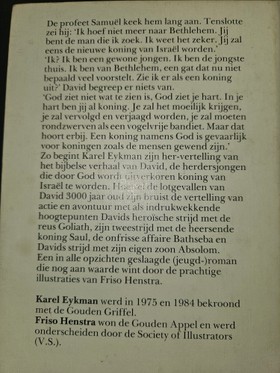 De profeet Samuël keek hem lang aan. Tenslotte
zei hij: 'Ik hoef niet meer naar Bethlehem. Jij
bent de man die ik zoek. Ik weet het zeker. Jij zal
eens de nieuwe koning van Israël worden.'
'Ik? Ik ben een gewone jongen. Ik ben de jongste
thuis. Ik ben van Bethlehem, een gat dat nu niet
bepaald veel voorstelt. Zie ik er als een koning
uit?' David begreep er niets van.
'God ziet niet wat te zien is, God ziet je hart. In je
hart ben jij al koning. Je zal het moeilijk krijgen,
je zal vervolgd en verjaagd worden, je zal moeten
rondzwerven als een vogelvrije bandiet. Maar dat
hoort erbij. Een koning namens God is gevaarlijk
voor koningen zoals de mensen gewend zijn.'
Zo begint Karel Eykman zijn her-vertelling van
het bijbelse verhaal van David, de herdersjongen
die door God wordt uitverkoren koning van
Israël te worden. Hoewel de lotgevallen van
David 3000 jaar oud zijn bruist de vertelling van
actie en avontuur met als indrukwekkende
hoogtepunten Davids heroïsche strijd met de
reus Goliath, zijn tweestrijd met de heersende
koning Saul, de onfrisse affaire Bathseba en
Davids strijd met zijn eigen zoon Absolom.
Een in alle opzichten geslaagde (jeugd-)roman
die nog aan waarde wint door de prachtige
illustraties van Friso Henstra.
Karel Eykman werd in 1975 en 1984 bekroond
met de Gouden Griffel.
Friso Henstra won de Gouden Appel en werd
onderscheiden door de Society of Illustrators
(V.S.).